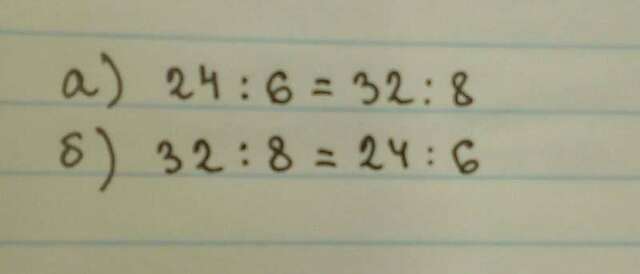 а) 24 : 6 = 32 : 8
б) 32 : 8 = 24 : 6